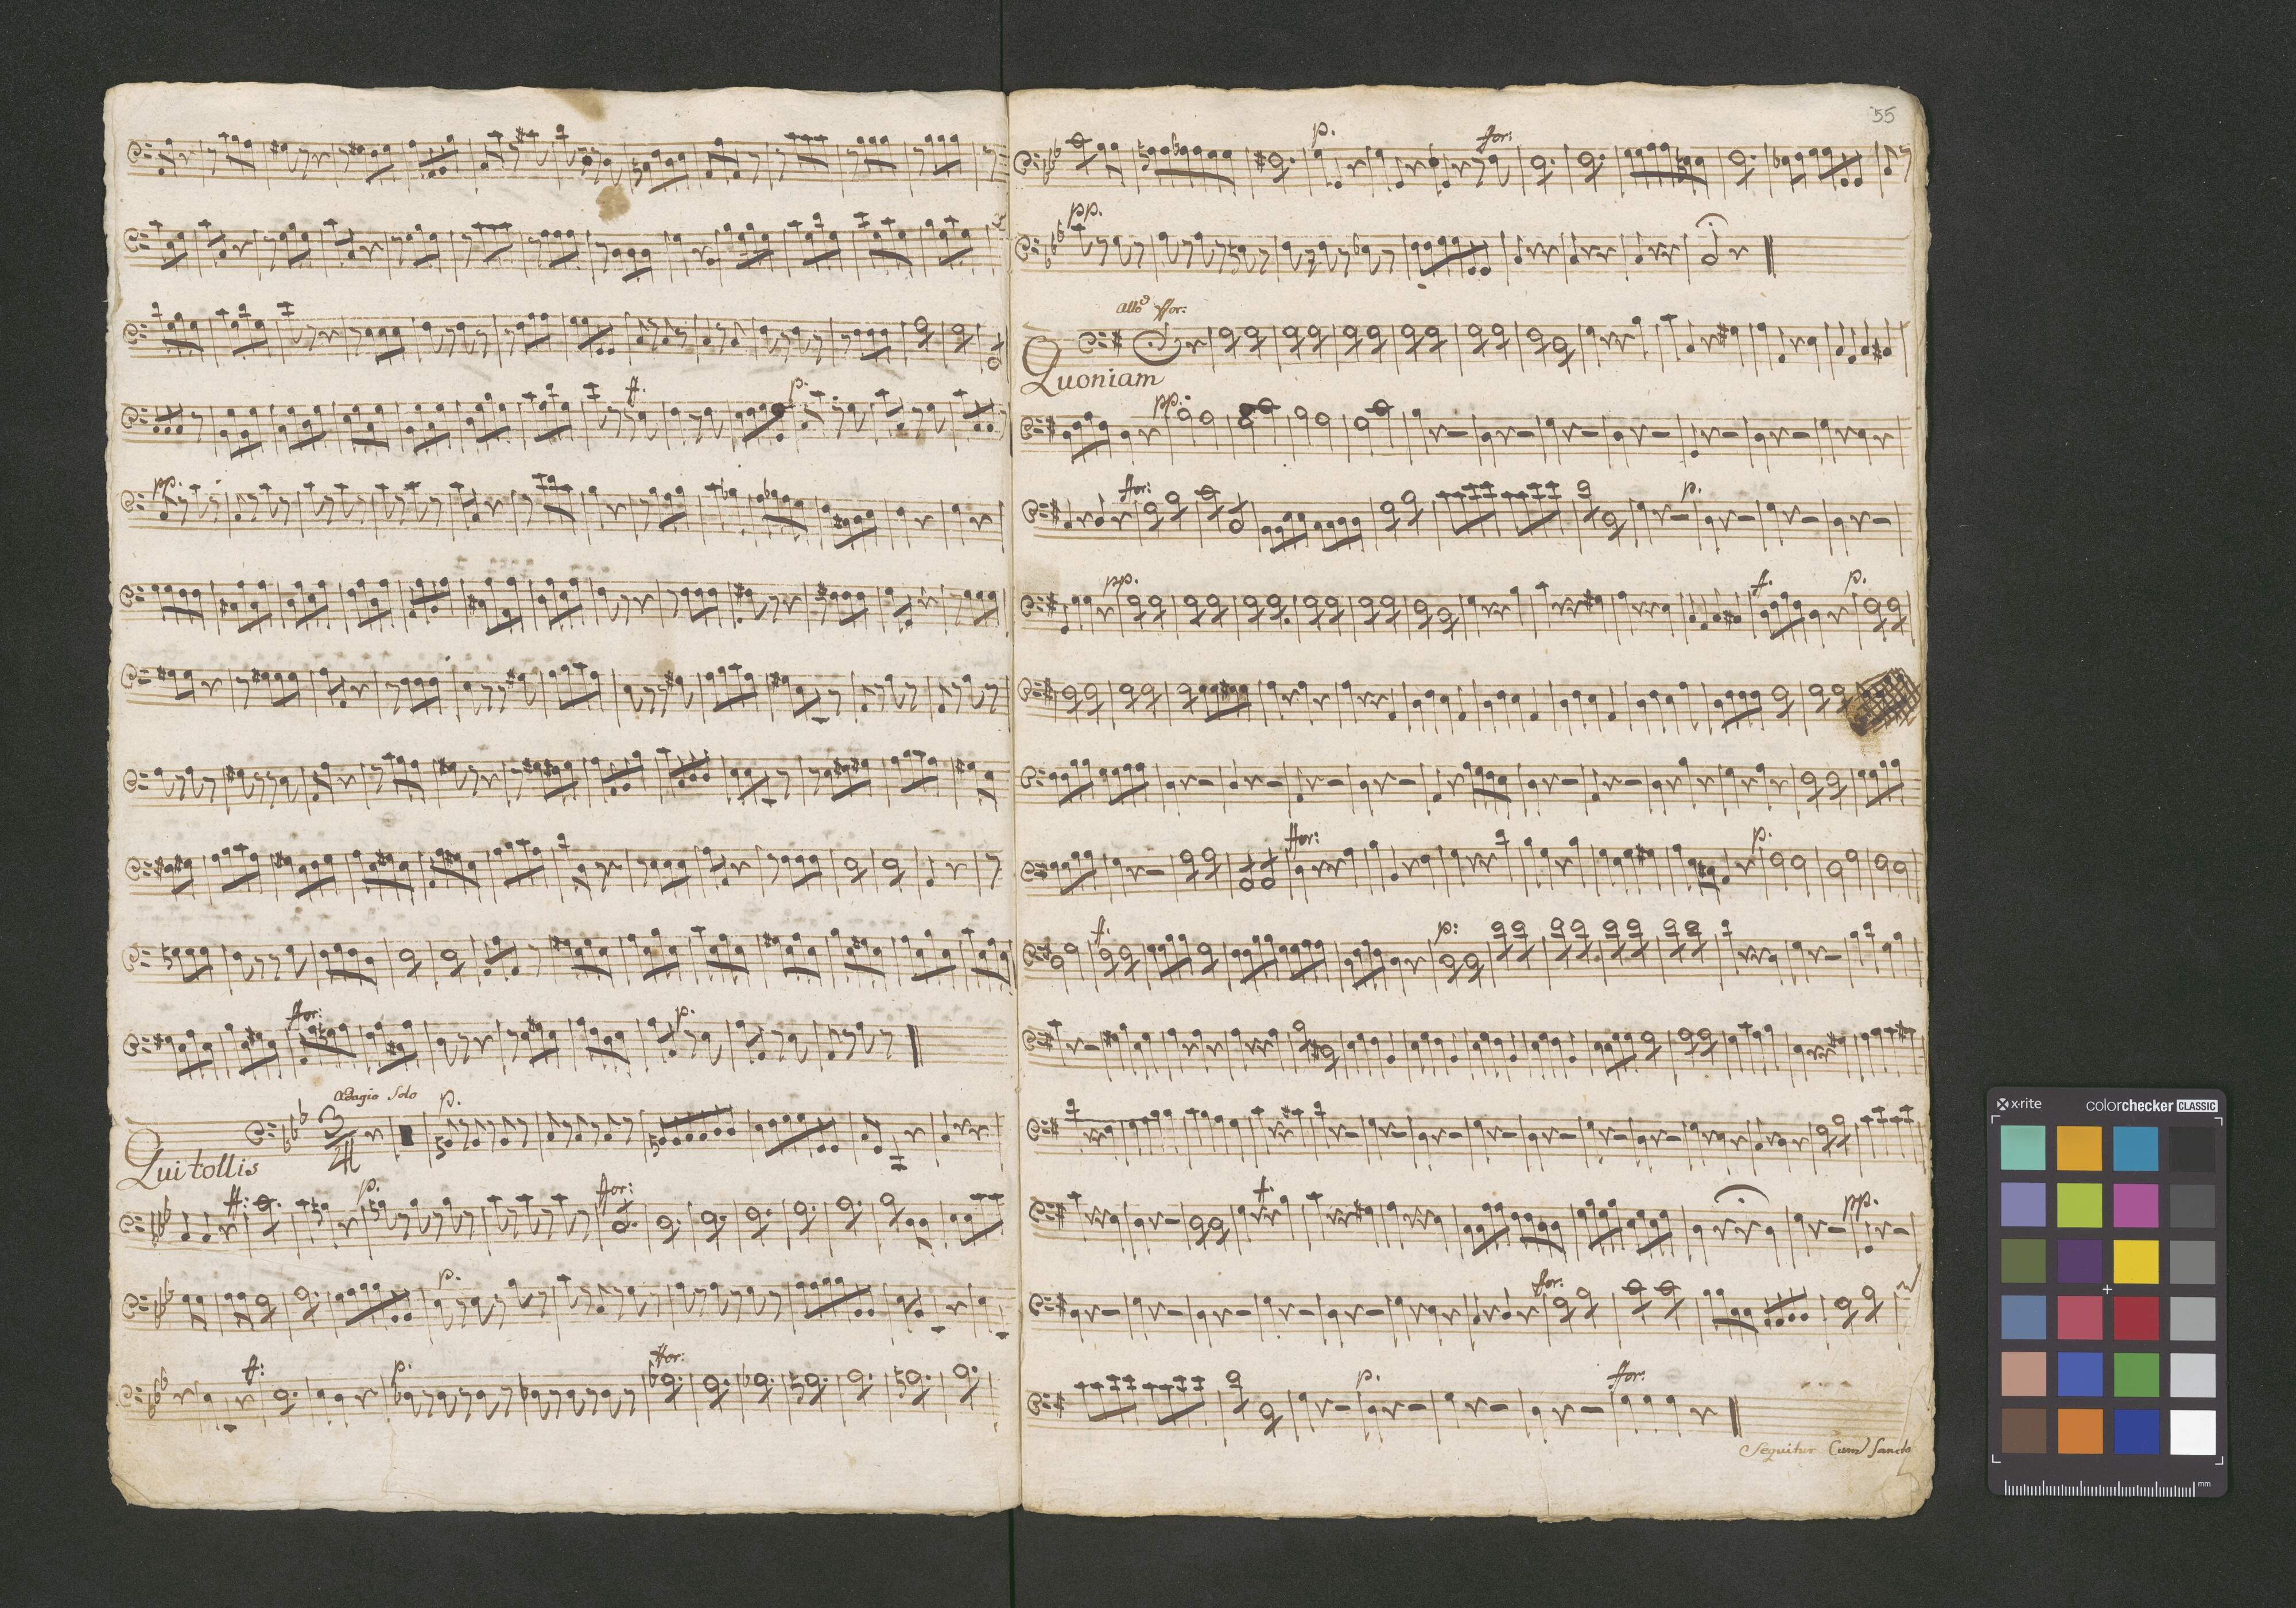 ff.
p.
pp.
ffor:
p.
Adagio Solo
p.
3/4
Qui tollis
ff:
p.
ffor:
p.
ff:
p.
ffor:
55
p.
ffor:
pp.
Allo ffor:
Quoniam
pp.
ffor:
p.
pp.
f.
p.
ffor:
p.
f.
p:
f.
pp.
for.
p.
ffor:
Sequitur Cum Sancto
x-rite
colorchecker CLASSIC
mm